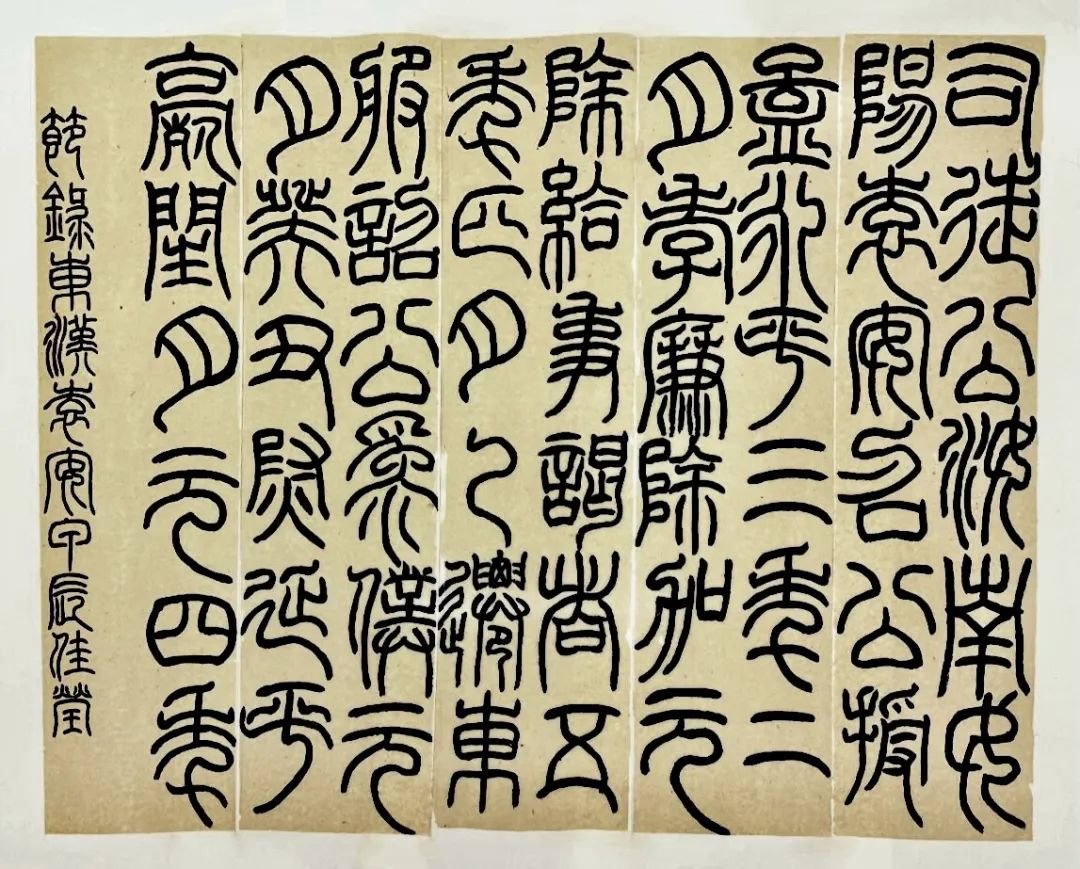 司徒公汝南女
陽袁安召公授
孟永平三年二
月孝廉除加元
除給事謁者五
年正月乙遷東
服詔公爲僕元
月癸丑尉延平
薨閏月元四年
節錄東漢袁安甲辰佳瑩